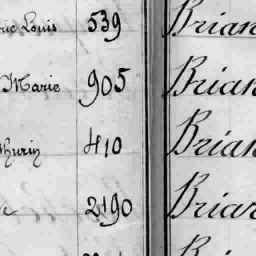 Louis 539 Brian
Marie 905 Brian
thurin 410 Brian
2190 Brian